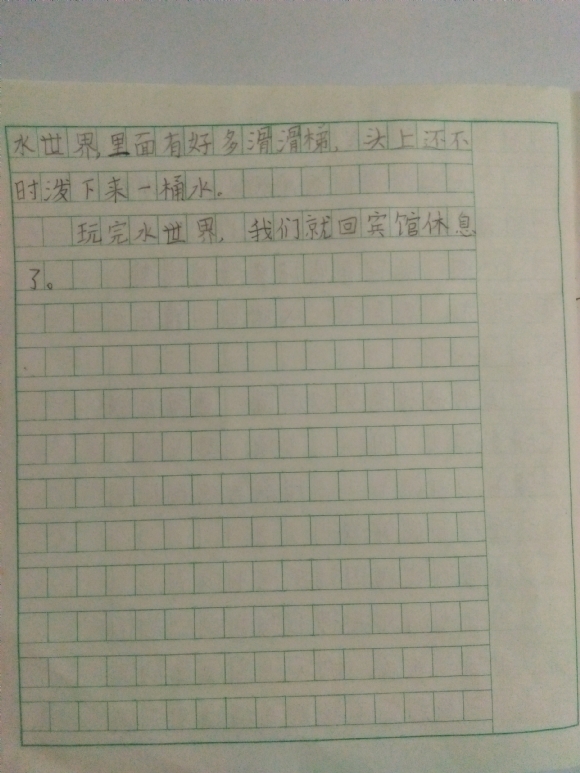 水世界,里面有好多滑滑梯,头上还不
时泼下来一桶水。
玩完水世界,我们就回宾馆休息
了。